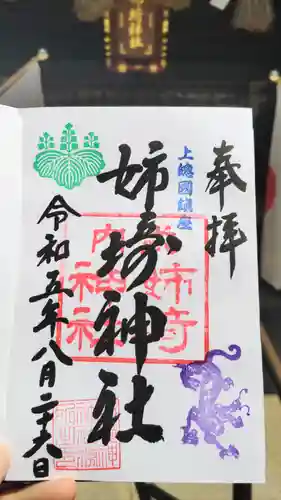 奉拝
上總國鎮座
姉埼神社
令和五年八月二十六日